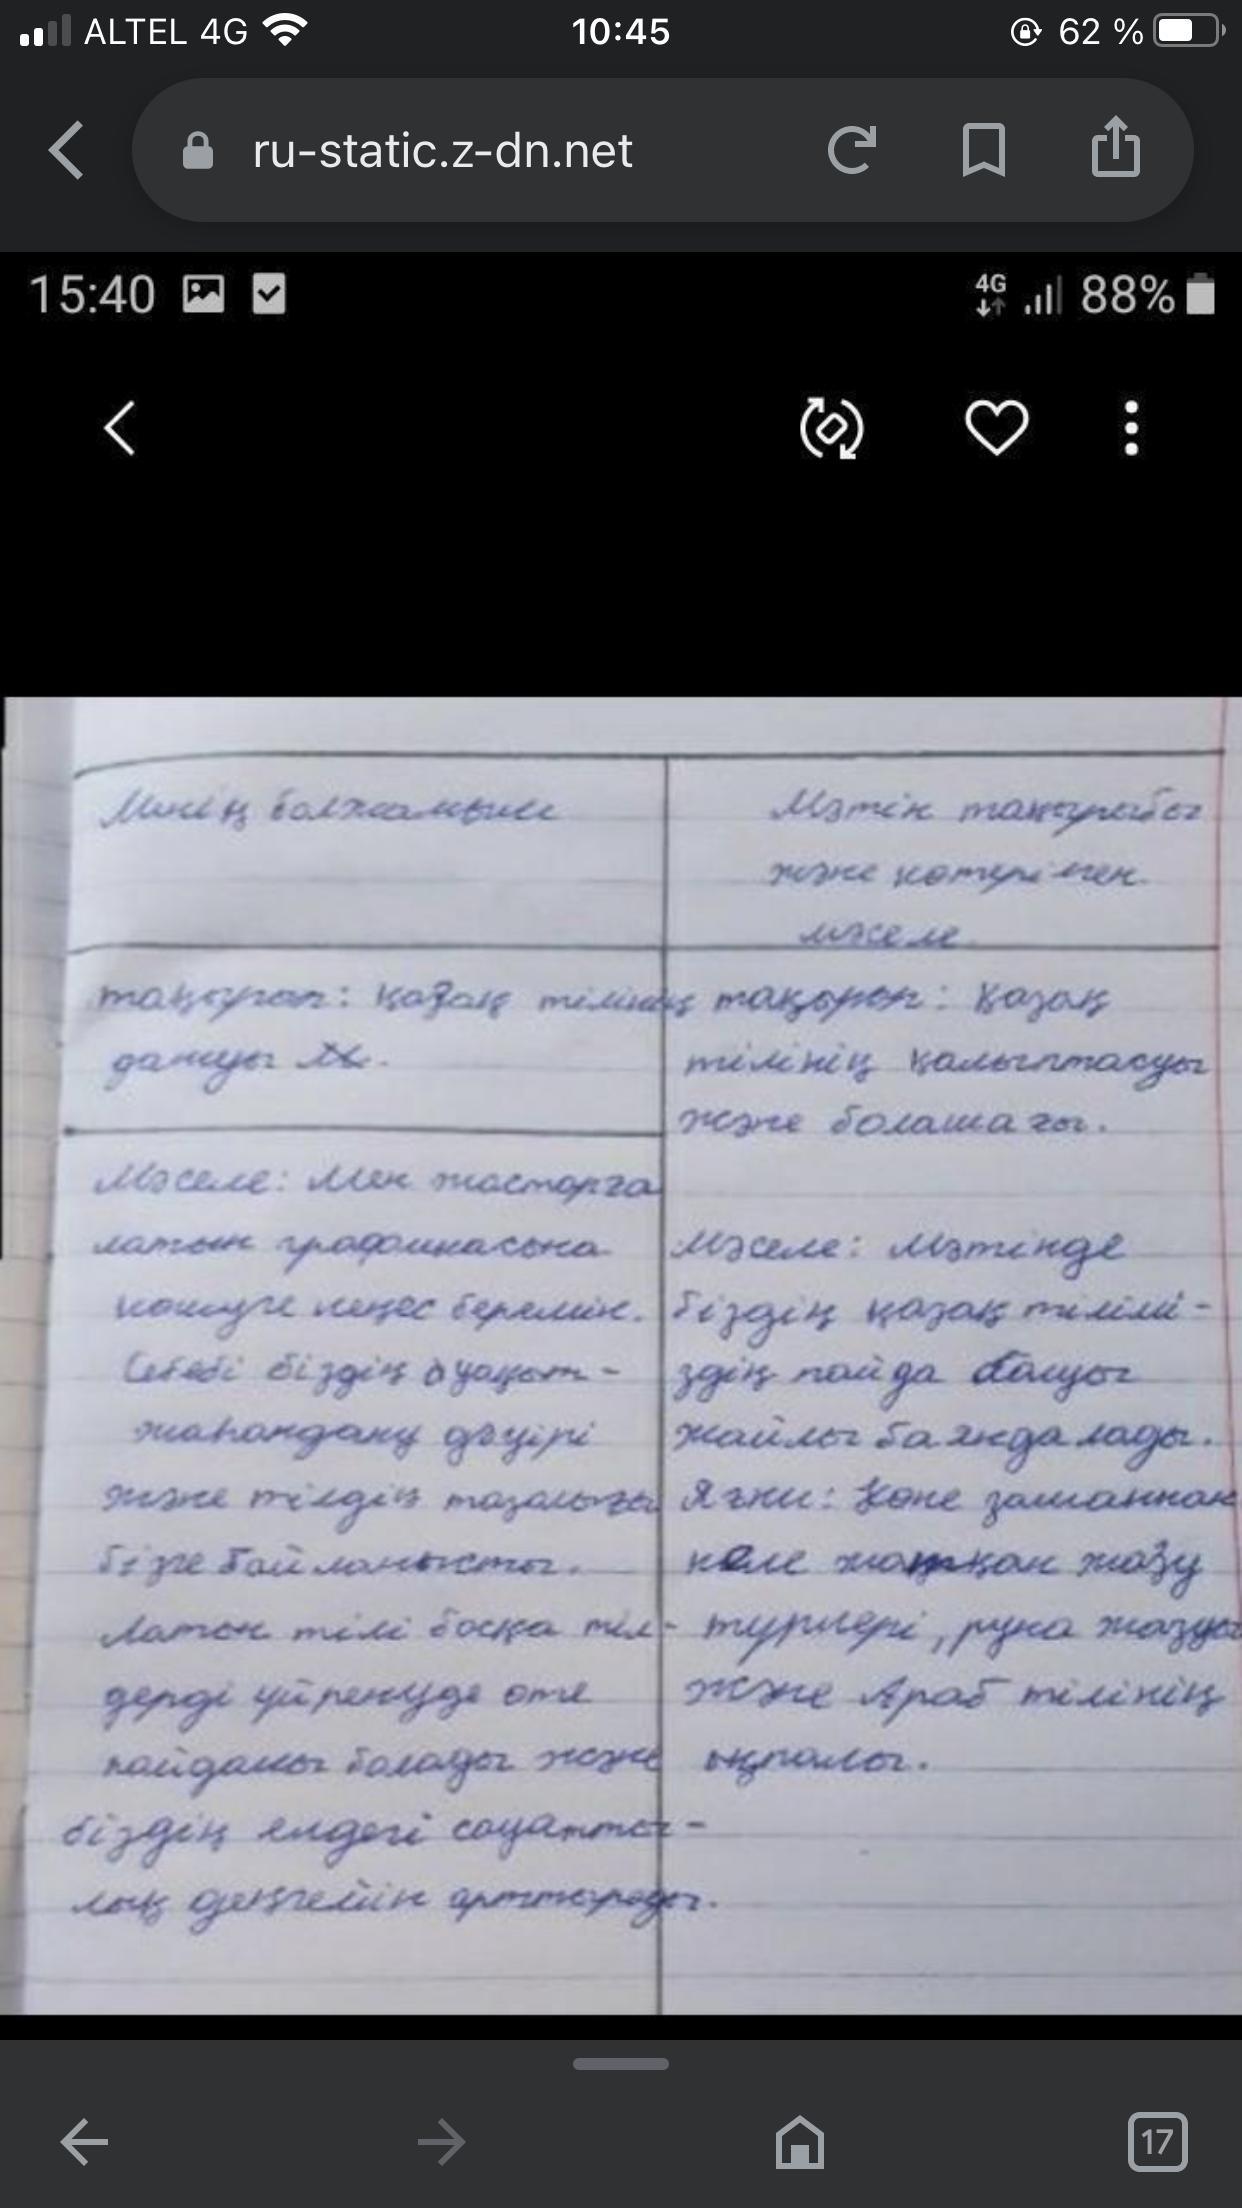 ALTEL 4G 10:45 62 %
ru-static.z-dn.net
15:40 4G 88%
Менің болжамым
Мәтін тақырыбы
және көтерілген
мәселе
тақырып: қазақ тілінің
дамуы
тақырып: Қазақ
тілінің қалыптасуы
және болашағы.
Мәселе: Мен жастарға
латын графикасына
көшуге кеңес беремін.
Себебі біздің уақыт -
жаһандану дәуірі
және тілдің тазалығы
бізге байланысты.
Латын тілі басқа тіл-
дерді үйренуде өте
пайдалы болады және
біздің елдегі сауатты-
лық деңгейін арттырады.
Мәселе: Мәтінде
біздің қазақ тілімі-
здің пайда болуы
жайлы баяндалады.
Яғни: Көне заманнан
келе жатқан жазу
түрлері, руна жазуы
және Араб тілінің
ықпалы.
17